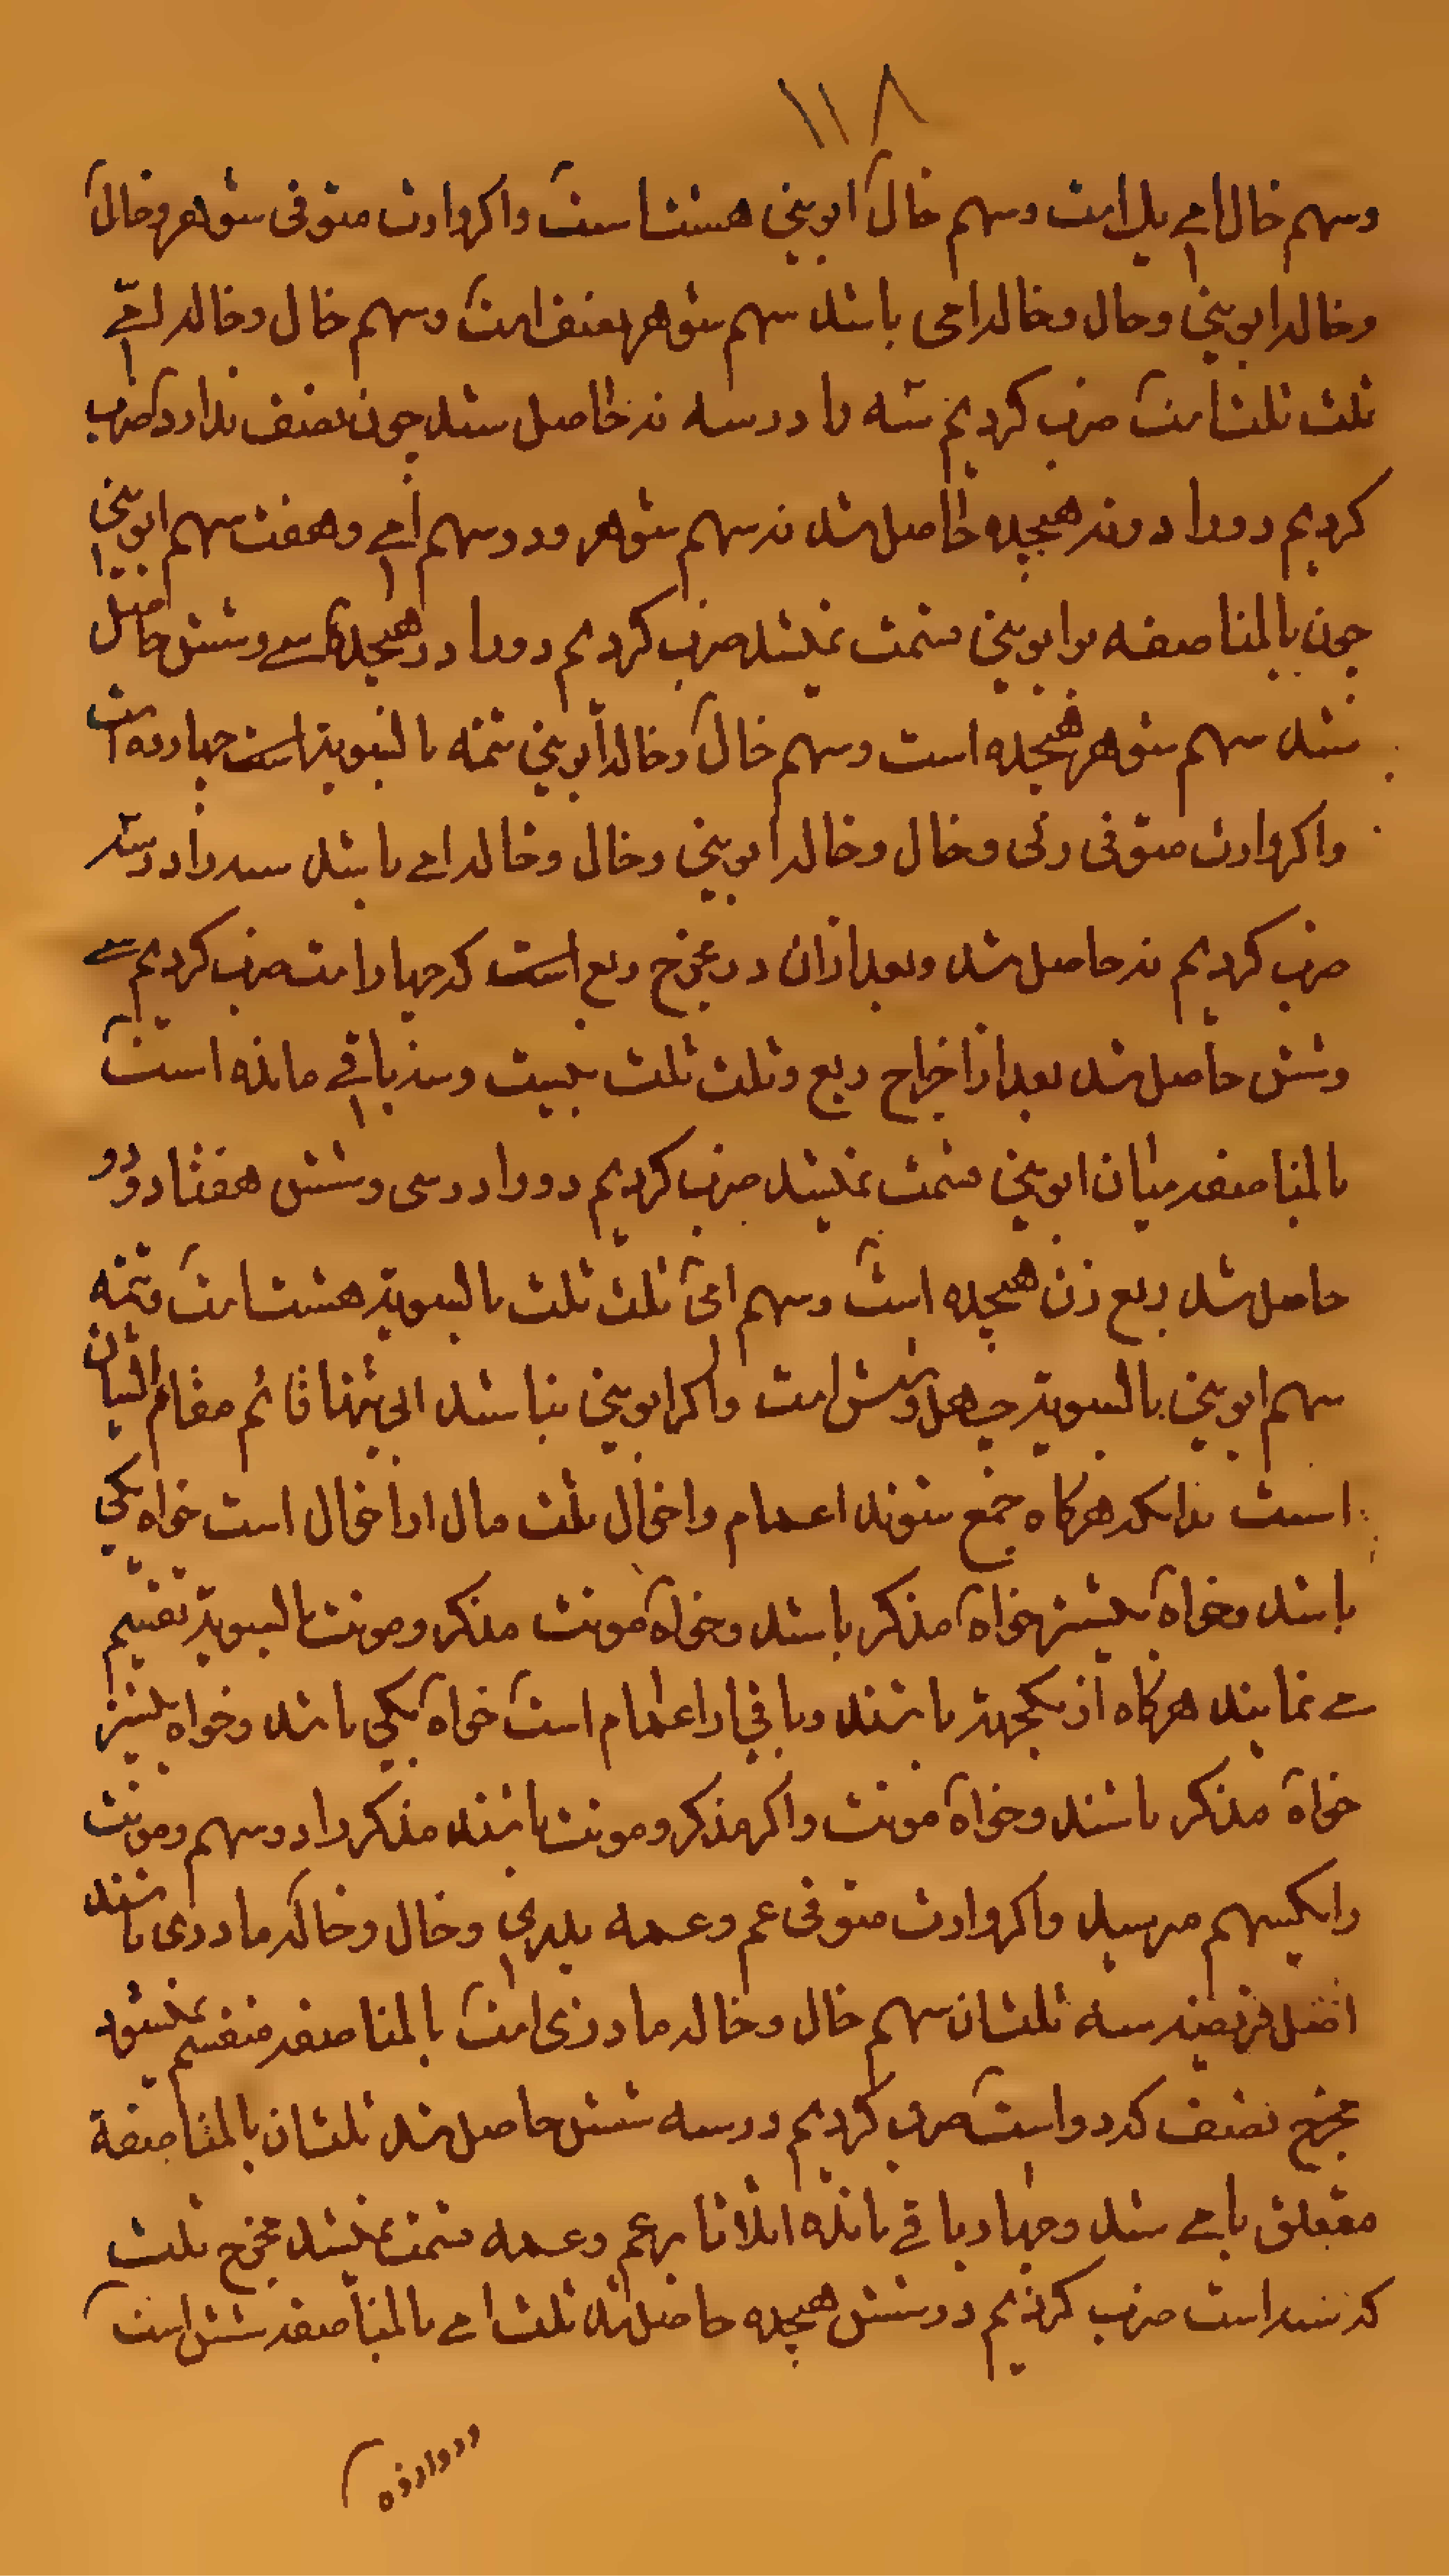 ۱۱۸
وسهم خال امے یك است وسهم خال ابوینی هشت است واکر وارث متوفی شوهر وخال
وخاله ابوینی وخال وخاله امی باشد سهم شوهر نصف است وسهم خال وخاله امّے
ثلث ثلث است ضرب کردیم سه را در سه نه حاصل شد چون نصف ندارد ضرب
کردیم دو را در نه هیجده حاصل شد نه سهم شوهر ودو سهم امے وهفت سهم ابوینی
چون بالمناصفه بر ابوینی قسمت نمیشد ضرب کردیم دو را در هیجده سے وشش حاصل
شد سهم شوهر هیجده است وسهم خال وخاله ابوینی تتمه بالسویة است چهارده است
واکر وارث متوفی زنی وخال وخاله ابوینی وخال وخاله امے باشد سه را در سه
ضرب کردیم نه حاصل شد وبعد ازان در مخرج ربع است که چهار است ضرب کردیم سے
وشش حاصل شد بعد از اخراج ربع وثلث ثلث بیست وسه باقے مانده است
بالمناصفه میان ابوینی قسمت نمیشد ضرب کردیم دو را در سی وشش هفتاد ودو
حاصل شد ربع زن هیجده است وسهم امی ثلث ثلث بالسویة هشت است وتتمه
سهم ابوینی بالسویة چهل وشش است واکر ابوینی نباشد ابی تنها قائم مقام ایشان
است بدانکه هرکاه جمع شوند اعمام واخوال ثلث مال از اخوال است خواه یکی
باشد وخواه بیشتر خواه مذکر باشد وخواه مونث مذکر ومونث بالسویة تقسیم
مے نمایند هرکاه از یکجهة باشند وباقی از اعمام است خواه یکی باشد وخواه بیشتر
خواه مذکر باشند وخواه مونث واکر مذکر ومونث باشند مذکر را دو سهم ومونث
را یکسهم میرسد واکر وارث متوفی عم وعمه پدری وخال وخاله مادری باشند
اصل فریضه سه ثلث ان سهم خال وخاله مادری است بالمناصفه منقسم نمیشود
مخرج نصف که دو است ضرب کردیم در سه شش حاصل شد ثلث ان بالمناصفة
متعلق بامے شد وچهار باقے مانده اثلاثا بر عم وعمه قسمت نمیشد مخرج ثلث
که سه است ضرب کردیم در شش هیجده حاصل شد ثلث امے بالمناصفه شش است
ودوازده